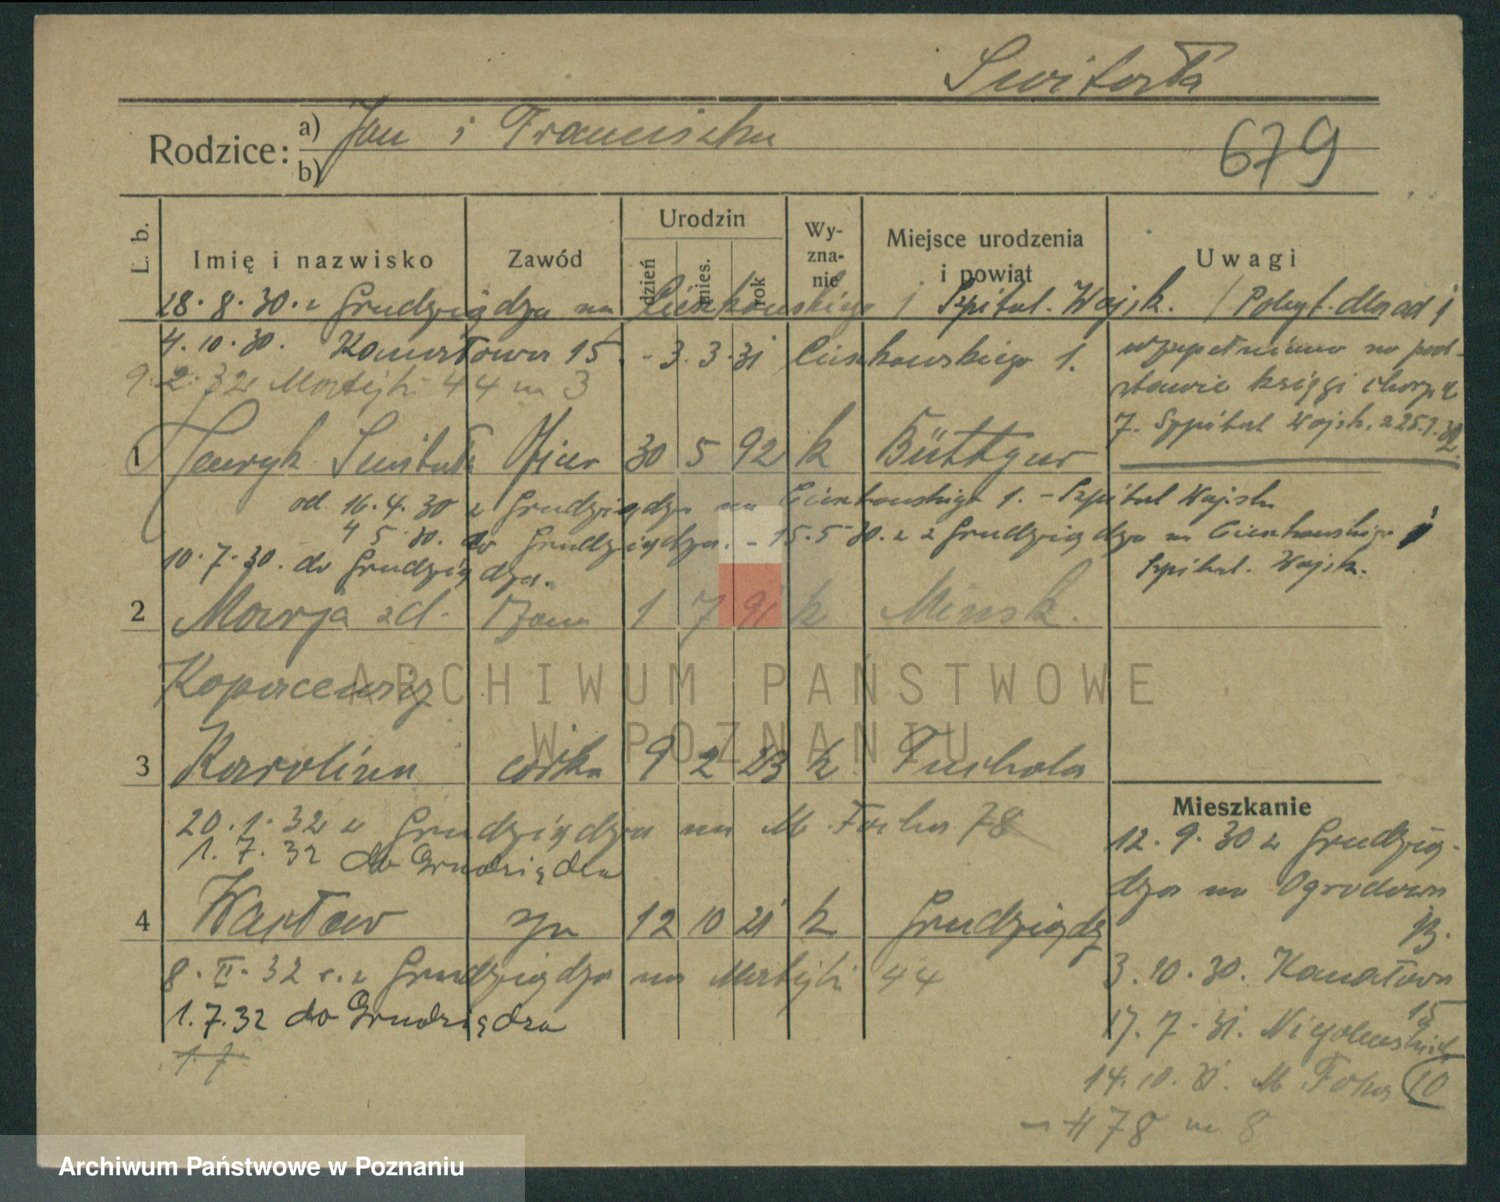 Switała
Rodzice: a) Jan i Franciszka
b)
679
L. b.
Imię i nazwisko
Zawód
Urodzin
dzień
mies.
rok
Wy-
zna-
nie
Miejsce urodzenia
i powiat
Uwagi
28.8.30. z Grudziądza na Cieszkowskiego 1 Szpital. Wojsk.
4.10.30. Kanałowa 15. - 3.3.31 Cieszkowskiego 1.
9.2.32 44 m 3
uzupełniono na pod-
stawie księgi
7. Szpital Wojsk. z 25.1.32.
1 Henryk Switała 30 5 92 k
od 16.4.30 z Grudziądza na Cieszkowskiego 1. - Szpital Wojsk.
4 5 30. do Grudziądza. - 15.5.30. z Grudziądza na Cieszkowskiego 1
10.7.30. do Grudziądza. Szpital. Wojsk.
2 Marja zd. żona 1 7 91 k Minsk.
Kopacewicz
3 Karolina córka 9 2 23 k Tuchola
20.1.32 z Grudziądza na M. Focha 78
1.7.32 do Grudziądza
4 Wacław syn 12 10 21 k Grudziądz
8.II.32 z Grudziądza na 44
1.7.32 do Grudziądza
1.7.
Mieszkanie
12.9.30 z Grudzią-
dza na Ogrodowa
13.
3.10.30. Kanałowa
15
17.7.31. Niegolewskich
10
14.10.31. M Focha
78 m 8
ARCHIWUM PAŃSTWOWE
W POZNANIU
Archiwum Państwowe w Poznaniu